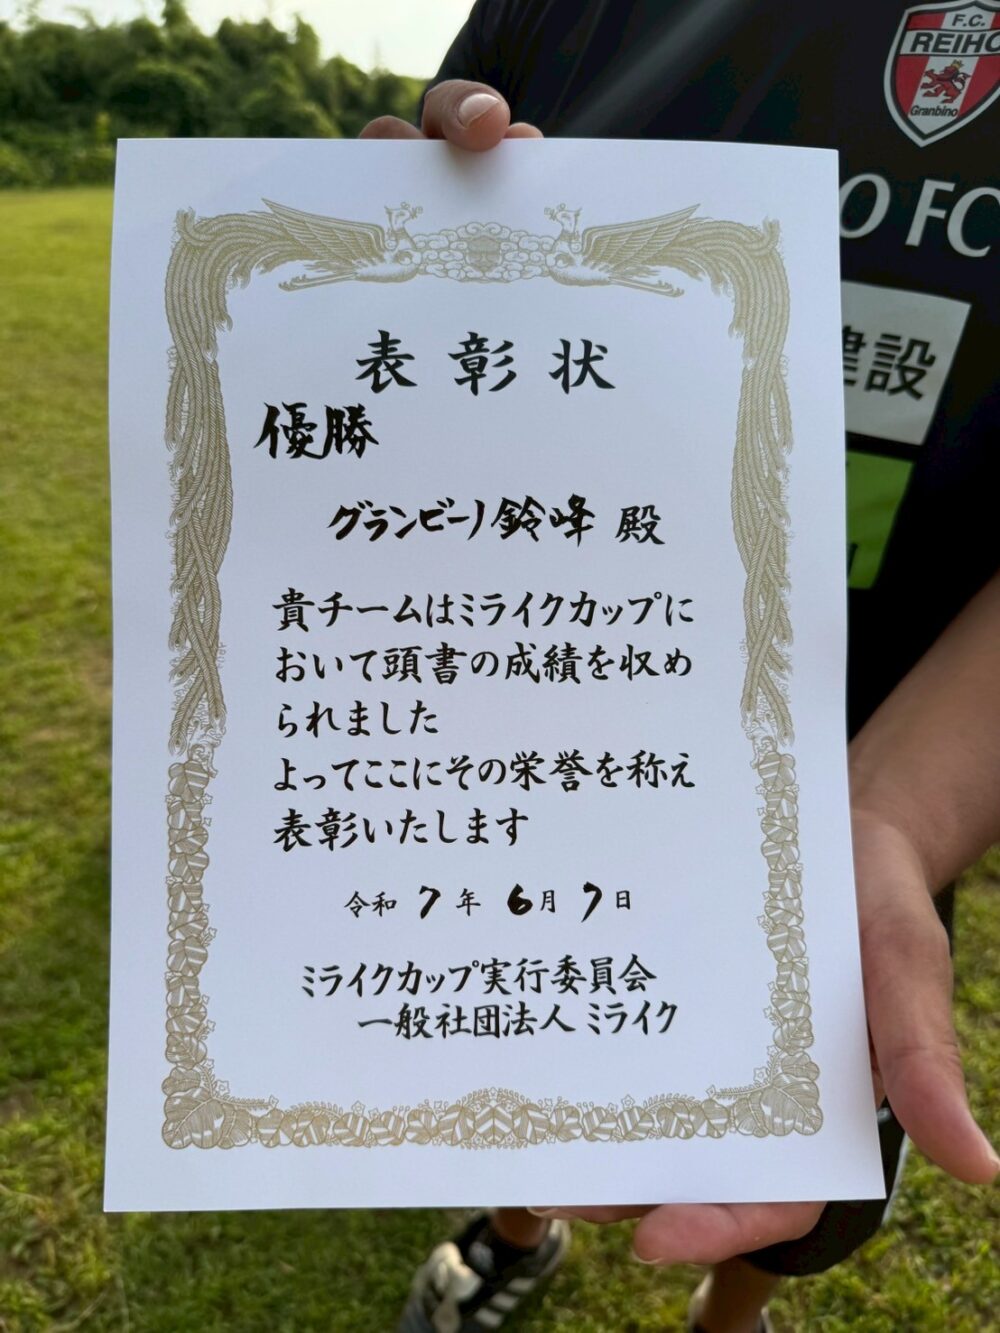 F.C.
REIHO
Granbino
O FC
建設
表彰状
優勝
グランビーノ鈴峰 殿
貴チームはミライクカップに
おいて頭書の成績を収め
られました
よってここにその栄誉を称え
表彰いたします
令和 7 年 6 月 7 日
ミライクカップ実行委員会
一般社団法人 ミライク